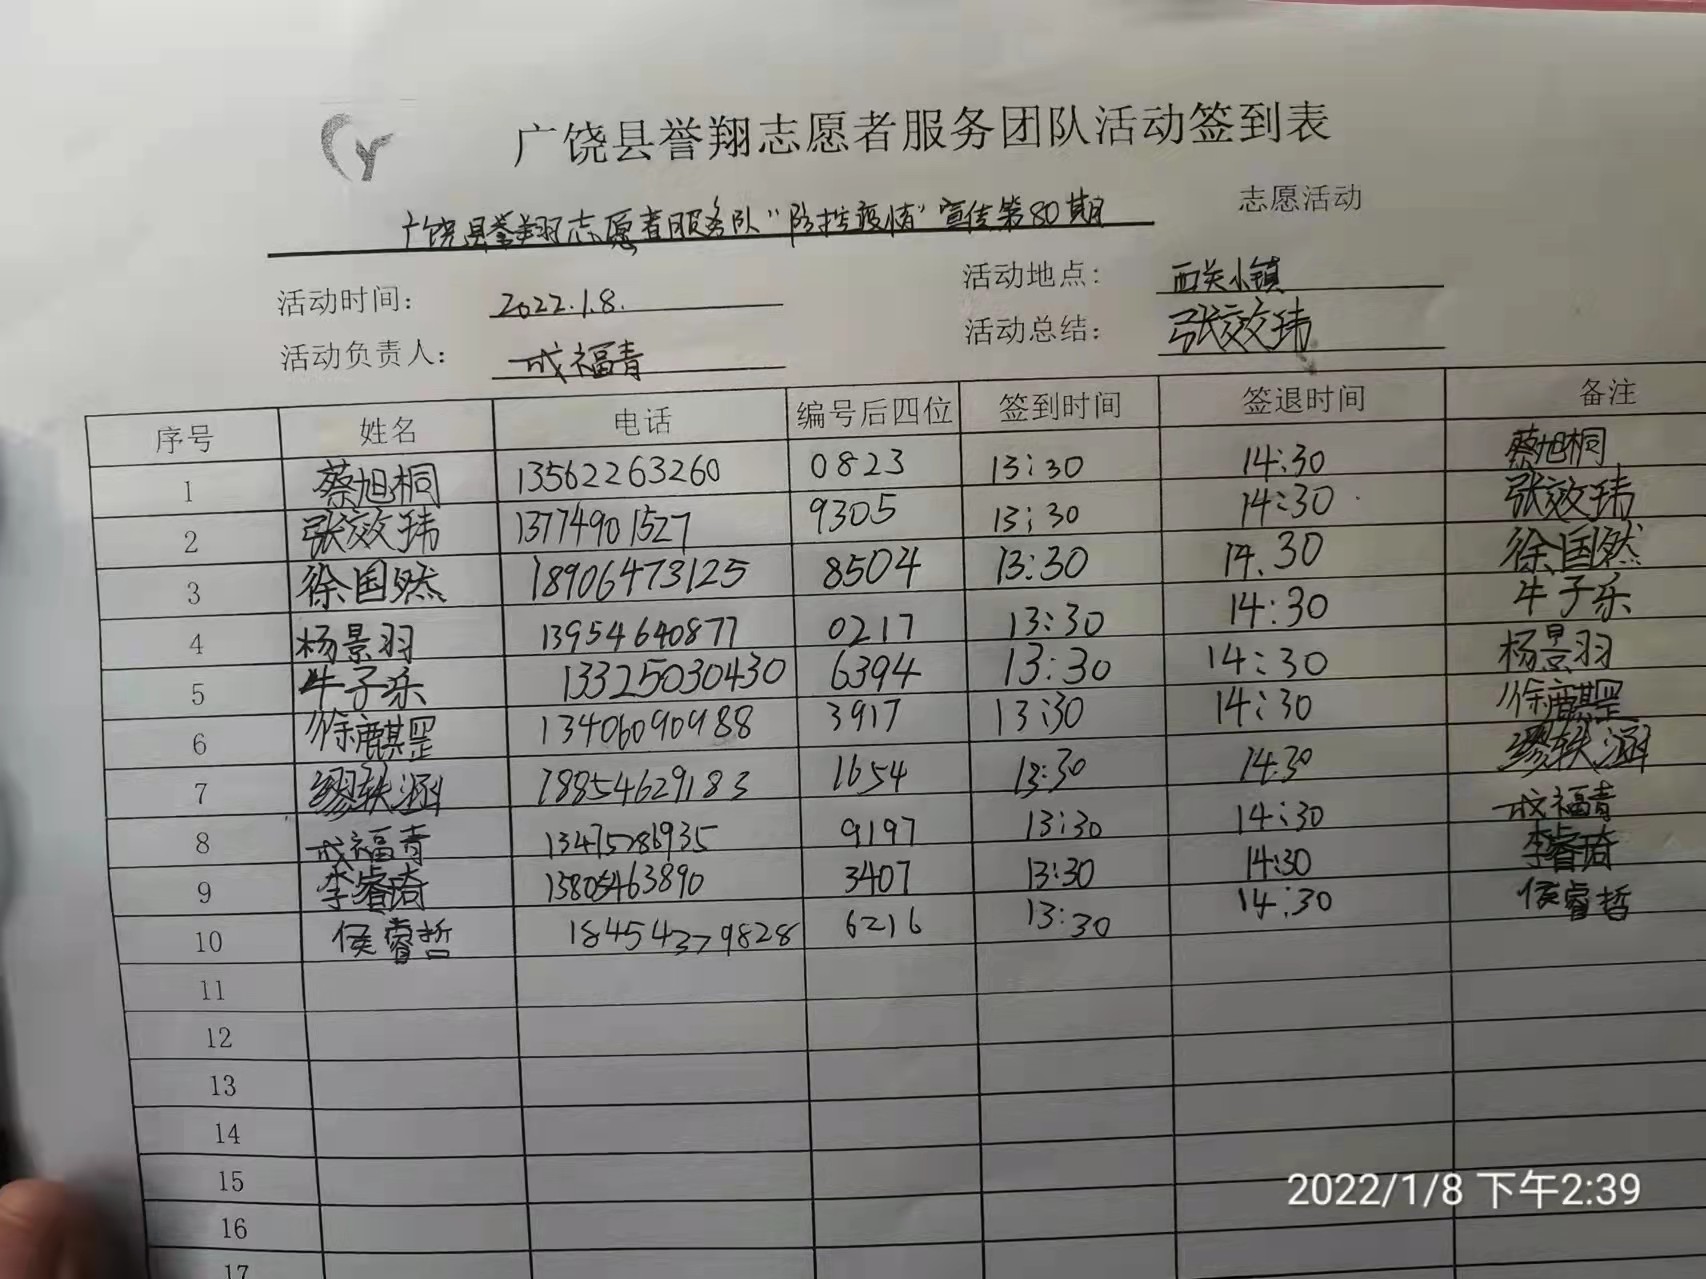 广饶县誉翔志愿者服务团队活动签到表
广饶县誉翔志愿者服务队“防控疫情”宣传第80期 志愿活动
活动时间： 2022.1.8. 活动地点： 西关小镇
活动负责人： 成福青 活动总结： 张效玮
序号 姓名 电话 编号后四位 签到时间 签退时间 备注
1 蔡旭桐 13562263260 0823 13:30 14:30 蔡旭桐
2 张效玮 13774901527 9305 13:30 14:30 张效玮
3 徐国然 18906473125 8504 13:30 14.30 徐国然
4 杨景羽 13954640877 0217 13:30 14:30 牛子乐
5 牛子乐 13325030430 6394 13:30 14:30 杨景羽
6 徐麒罡 13406090988 3917 13:30 14:30 徐麒罡
7 缪轶涵 18854629183 1654 13:30 14:30 缪轶涵
8 成福青 13475286935 9197 13:30 14:30 成福青
9 李睿琦 13805463890 3407 13:30 14:30 李睿琦
10 侯睿哲 18454379828 6216 13:30 14:30 侯睿哲
11
12
13
14
15
16
17
2022/1/8 下午2:39